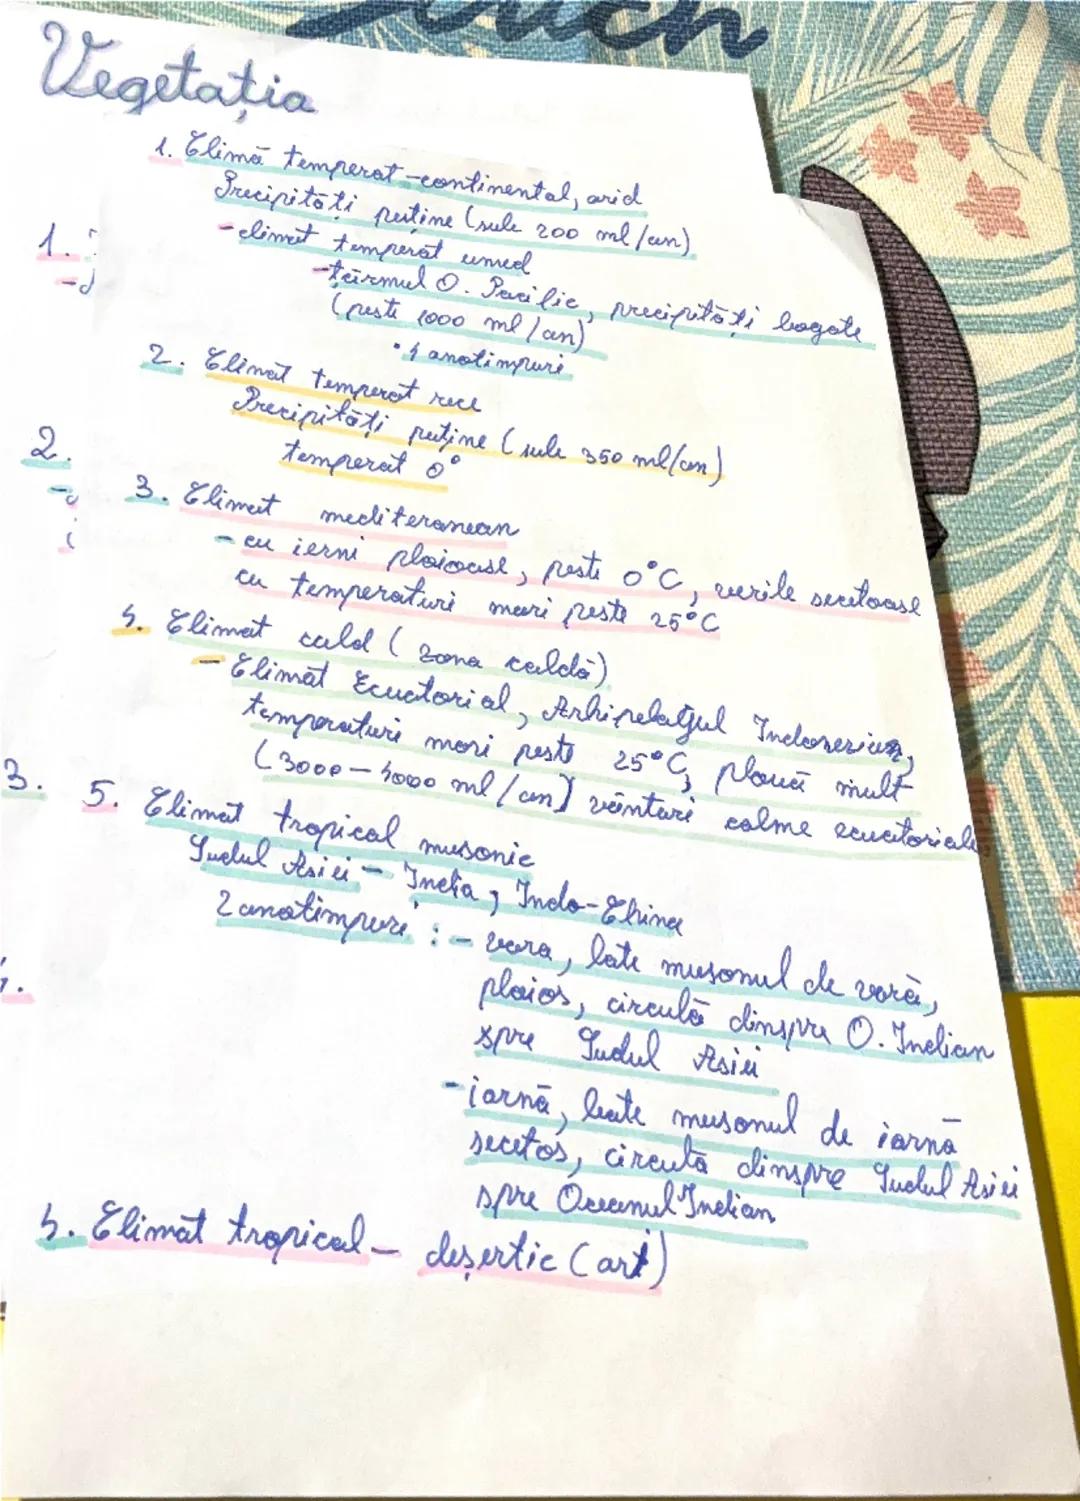 Vegetația
1. Climă temperat-continental, arid
Precipităti puține (sub 200 ml/an)
- climat temperat umed
- țărmul O. Pacific, precipităti bogate
(peste 1000 ml/an)
• 4 anotimpuri
2. Climat temperat rece
Precipităti puține (sub 350 ml/an)
temperat 0°
3. Climat mediteranean
- cu ierni ploioase, peste 0°C, verile secetoase
cu temperaturi mari peste 25°C
4. Climat cald (zona caldă)
- Climat Ecuatorial, Arhipelagul Indonezian,
temperaturi mari peste 25°C, plouă mult
(3000-4000 ml/an) vânturi calme ecuatoriale
5. Climat tropical musonic
Sudul Asiei - India, Indo-China
2 anotimpuri : - vara, bate musonul de vară,
ploios, circulă dinspre O. Indian
spre Sudul Asiei
- iarnă, bate musonul de iarnă
secetos, circulă dinspre Sudul Asiei
spre Oceanul Indian
5. Climat tropical - deșertic (art)
1.
2.
3.